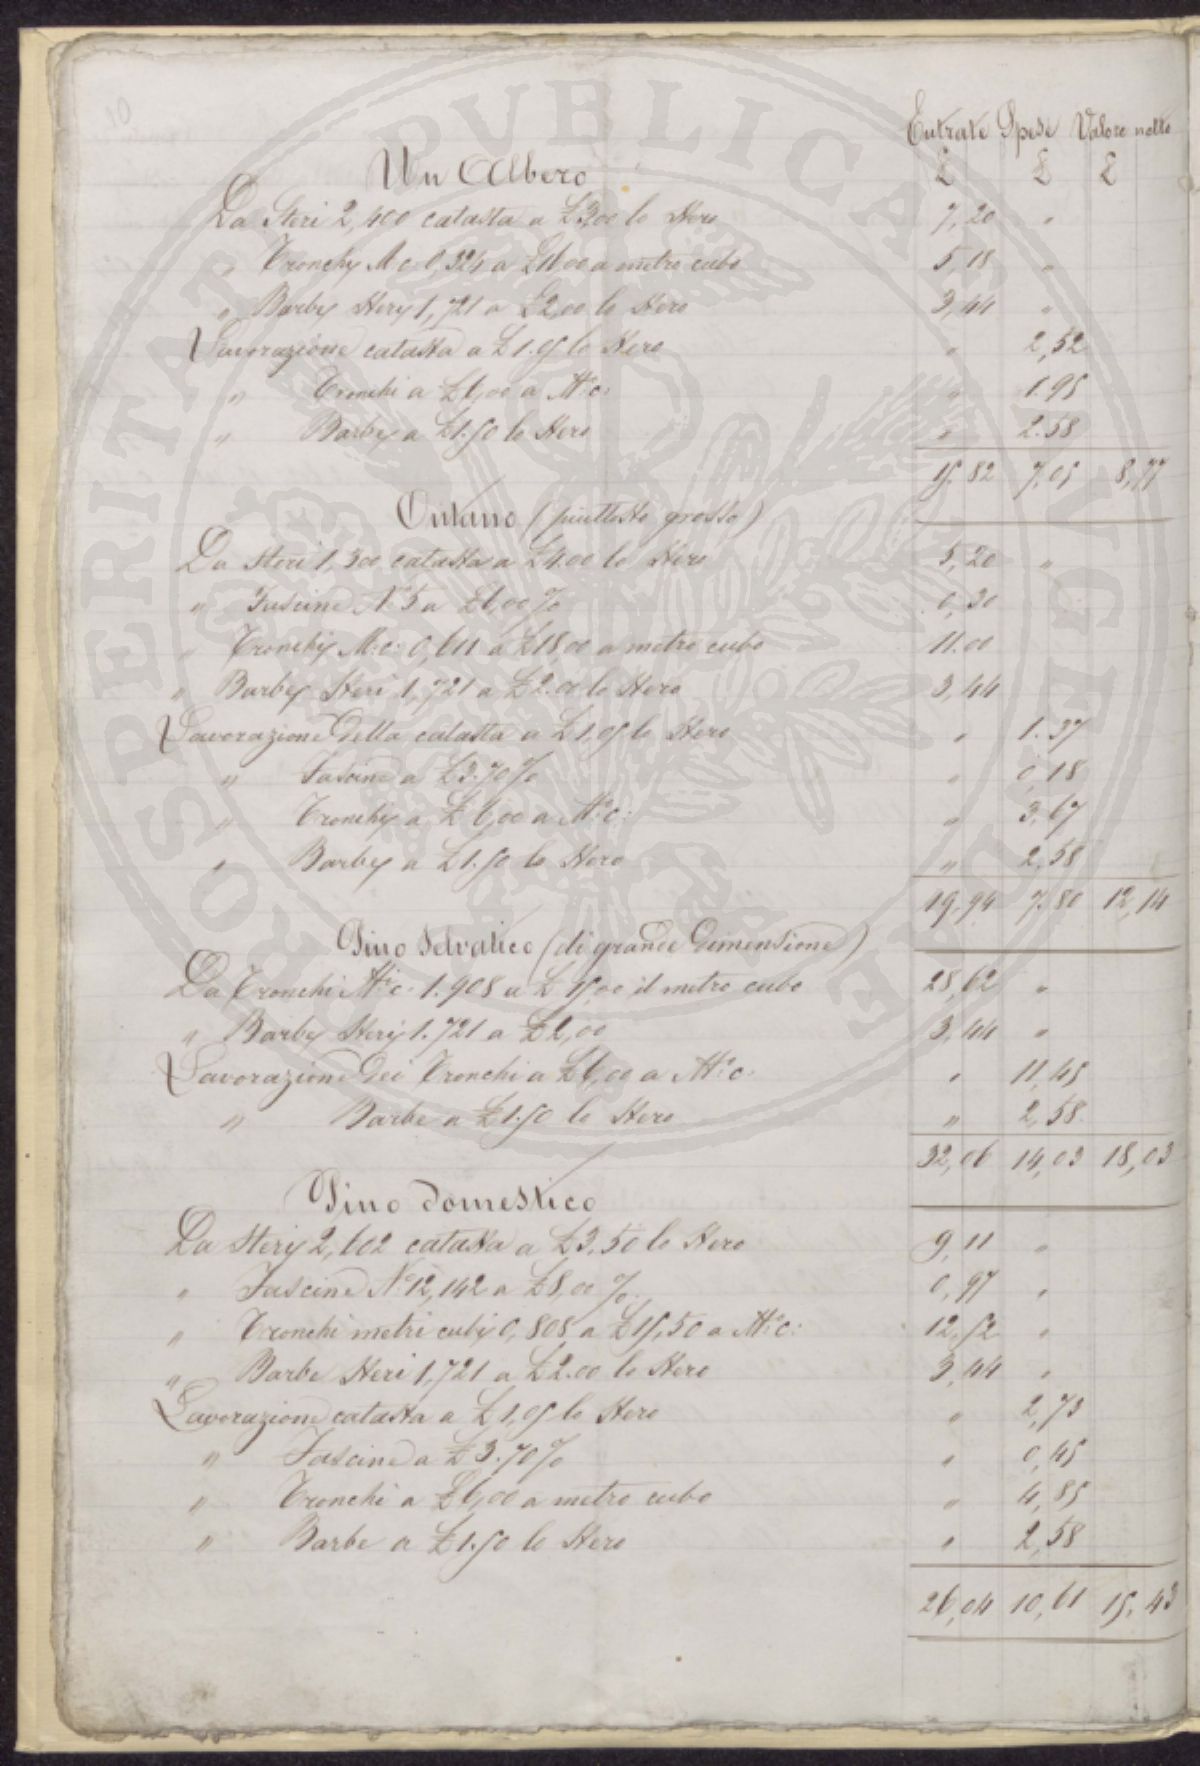 10
Entrate Spese Valore netto
£ £ £
Un Albero
Da Steri 2,400 catasta a £ 3,00 lo stero 7,20 "
" Tronchy M c 0,324 a £ 16.00 a metro cubo 5,18 "
" Barby Stery 1,721 a £ 2,00 lo stero 3,44 "
Lavorazione catasta a £ 1.05 lo stero " 2,52
" Tronchi a £ 6,00 a M.o c: " 1.95
" Barby a £ 1.50 lo stero " 2.58
15,82 7,05 8,77
Ontano (piuttosto grosso)
Da Steri 1,300 catasta a £ 4.00 lo stero 5,20 "
" Fascine N.o 5 a £ 6,00 % 0,30
" Tronchy M.c: 0,611 a £ 18,00 a metro cubo 11.00
" Barby Steri 1,721 a £ 2.00 lo stero 3,44
Lavorazione della catasta a £ 1,05 lo stero " 1.37
" Fascine a £ 3.70 % " 0,18
" Tronchy a £ 6,00 a M.o c: " 3,67
" Barby a £ 1.50 lo stero " 2,58
19,94 7.80 12,14
Pino Selvatico (di grande dimensione)
Da Tronchi M.o c: 1.908 a £ 15,00 il metro cubo 28,62 "
" Barby Stery 1.721 a £ 2,00 3,44 "
Lavorazione dei Tronchi a £ 6,00 a M.o c: " 11,45
" Barbe a £ 1.50 lo stero " 2,58
32,06 14,03 18,03
Pino domestico
Da Stery 2,602 catasta a £ 3,50 lo stero 9,11 "
" Fascine N.o 12,142 a £ 8,00 % 0,97 "
" Tronchi metri cuby 0,808 a £ 15,50 a M.o c: 12,52 "
" Barbe Steri 1,721 a £ 2.00 lo stero 3,44 "
Lavorazione catasta a £ 1,05 lo stero " 2,73
" Fascine a £ 3.70 % " 0,45
" Tronchi a £ 6,00 a metro cubo " 4,85
" Barbe a £ 1.50 lo stero " 2,58
26,04 10,61 15,43
PROSPERITATI PUBLICAE